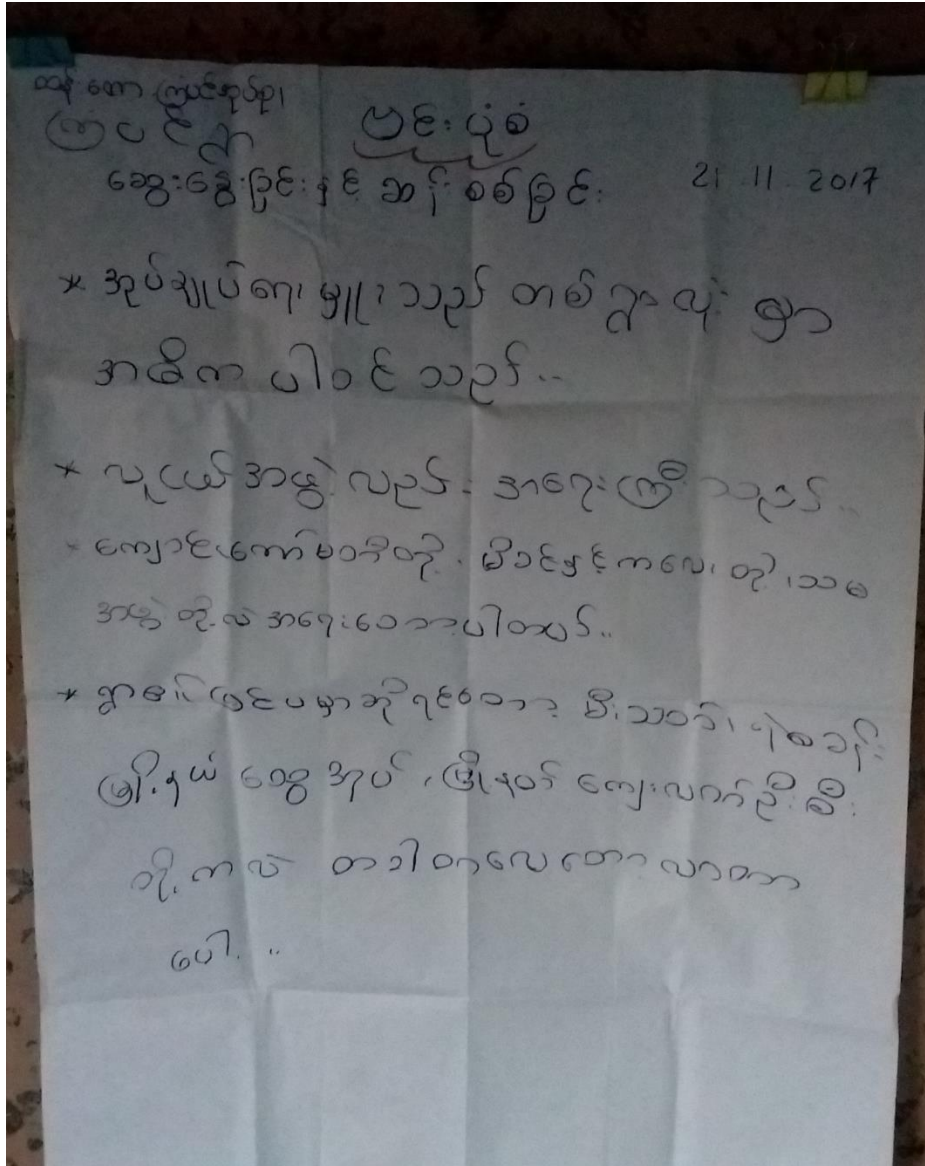 ထန်းတော ကြံခင်းအုပ်စု၊
ကြံခင်းရွာ ဗင်းပုံစံ
ဆွေးနွေးခြင်းနှင့် ဆန်းစစ်ခြင်း 21.11.2017
* အုပ်ချုပ်ရေးမှူးသည် တစ်ရွာလုံးမှာ
အဓိက ပါဝင်သည်..
* လူငယ်အဖွဲ့လည်း အရေးကြီးသည်..
* ကျောင်းကော်မတီတို့၊ မိခင်နှင့်ကလေးတို့၊ သမ
အဖွဲ့တို့လဲ အရေးသောပါတယ်..
* ရွာပြင်ပမှာဆိုရင်တော့ မီးသတ်၊ ရဲစခန်း
မြို့နယ် ထွေအုပ်၊ မြို့နယ် ကျေးလက်ဦးစီး
တို့ကလဲ တခါတလေတော့ လာတာ
ပေါ့..